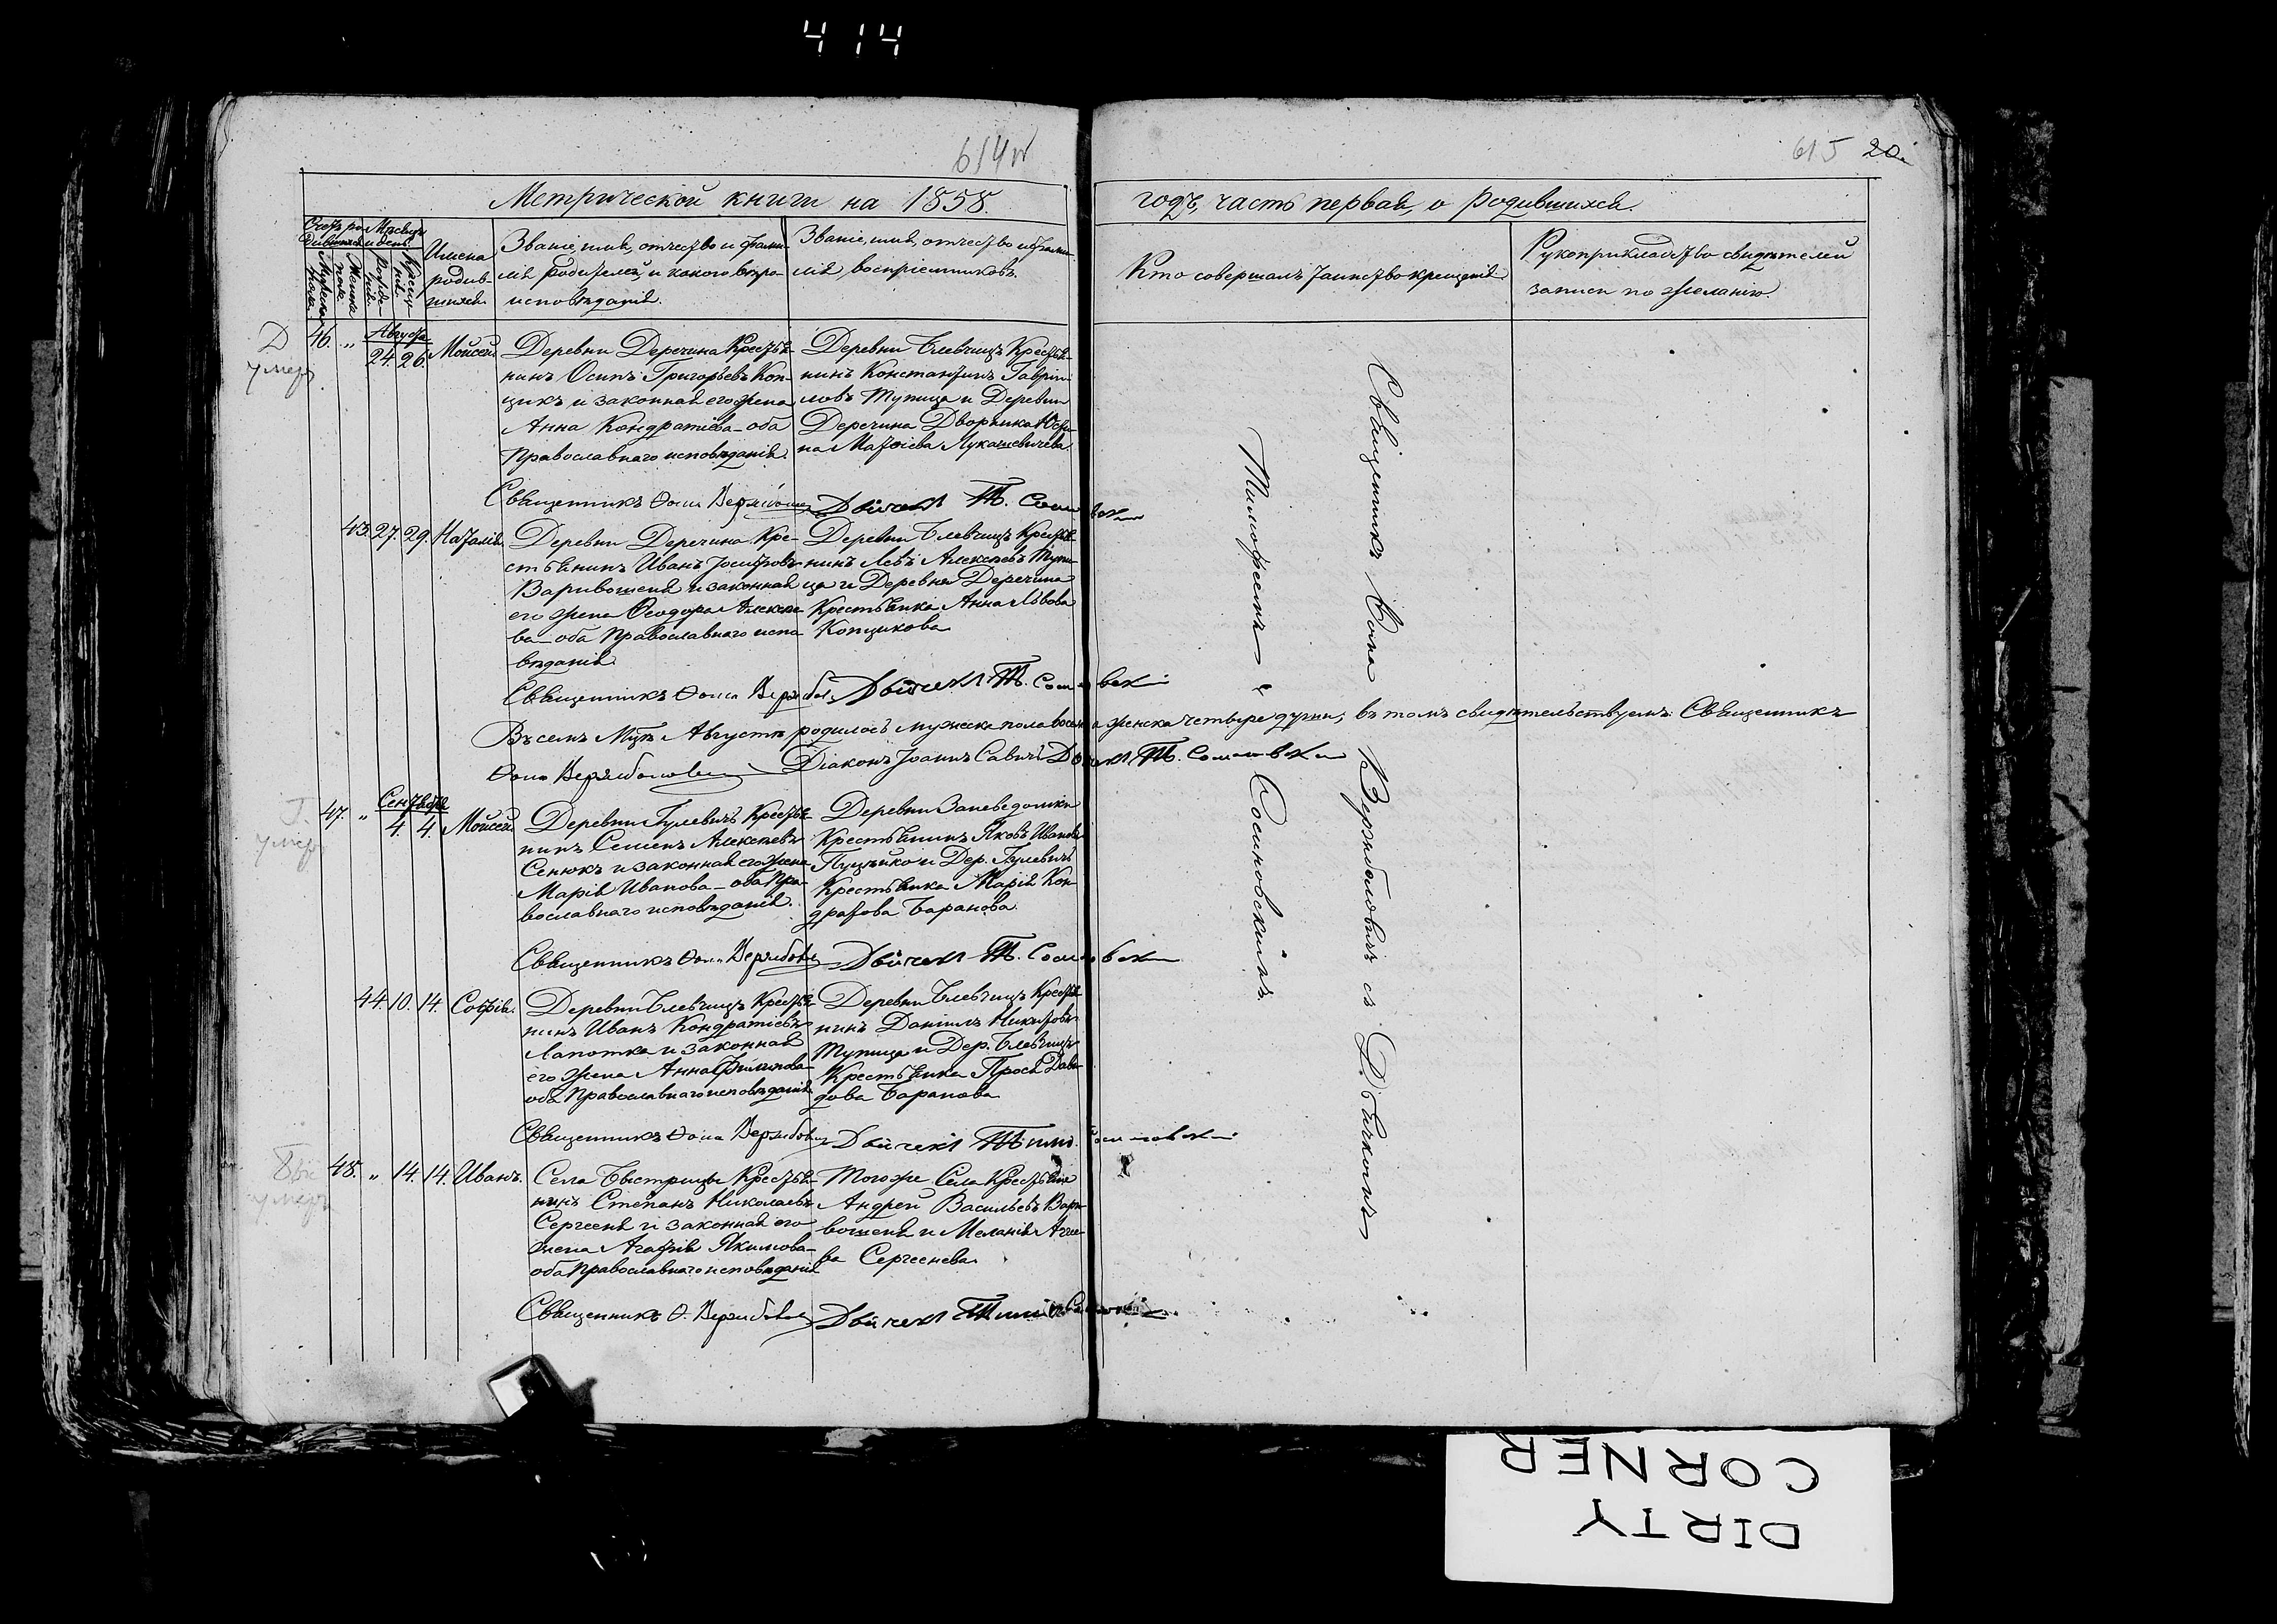 414
614
615 20.
Метрической книги на 1858.
годъ, часть первая, о родившихся.
Счетъ ро-
дившихся
Мужеска
пола.
Женска
пола.
Мѣсяцъ
и день.
Рожде-
нія.
Креще-
нія.
Имена
родив-
шихся.
Званіе, имя, отчество и фами-
лія родителей, и какого вѣро-
исповѣданія.
Званіе, имя, отчество и фами-
лія воспріемниковъ.
Кто совершалъ таинство крещенія
Рукоприкладство свидѣтелей
записи по желанію.
Д
умер
46. „ Августа 24. 26. Моисей
Деревни Деречина Крестья-
нинъ Осипъ Григорьевъ Коп-
щикъ и законная его жена
Анна Кондратіева - оба
Православнаго исповѣданія.
Деревни Блевчицъ Крестья-
нинъ Константинъ Гаврiи-
ловъ Тупица и Деревни
Деречина Дворянка Юсти-
на Матѳіева Лукашевичева.
Священникъ Ѳома Дьячекъ Т.
43. 27. 29. Наталія
Деревни Деречина Кре-
стьянинъ Иванъ Іосифовъ
Варивошеня и законная
его жена Ѳеодора Алексѣе
ва - оба Православнаго испо
вѣданія
Деревни Блевчицъ Крестья-
нинъ Левъ Алексѣевъ Тупи-
ца и Деревни Деречина
Крестьянка Анна Львова
Копщикова
Священникъ Ѳома Дьячекъ Т.
Въ семъ М-цѣ Августѣ родилось мужеска пола восемь а женска четыре души; въ томъ свидѣтельствуемъ: Священникъ
Ѳома Діаконъ Іоаннъ Савичъ Дьячекъ Т.
умер
47. „ Сентября 4. 4. Моисей
Деревни Гулевичъ Крестья-
нинъ Семенъ Алексѣевъ
Сенюкъ и законная его жена
Марія Иванова - оба Пра-
вославнаго исповѣданія.
Деревни
Крестьянинъ Яковъ Ивановъ
и Дер. Гулевичъ
Крестьянка Марія Кон-
дратова Баранова.
Священникъ Ѳома Дьячекъ Т.
44. 10. 14. Софія.
Деревни Блевчицъ Крестья-
нинъ Иванъ Кондратіевъ
Лапотка и законная
его жена Анна Филипова-
оба Православнаго исповѣданія
Деревни Блевчицъ Крестья
нинъ Даніилъ Никифоровъ
Тупица и Дер. Блевчицъ
Крестьянка Прося Дави-
дова Баранова
Священникъ Ѳома Дьячекъ
умер
48. „ 14. 14. Иванъ.
Села Быстрицы Крестья-
нинъ Степанъ Николаевъ
Сергееня и законная его
жена Агафія Якимова-
оба Православнаго исповѣданія
Тогоже Села Крестьянинъ
Андрей Васильевъ Вари-
вошеня и Меланія
ва Сергеенева.
Священникъ Ѳ. Дьячекъ
Священникъ Ѳома Вержболовичъ съ Дьячкомъ
Тимофеемъ Сосиновскимъ.
DIRTY
CORNER